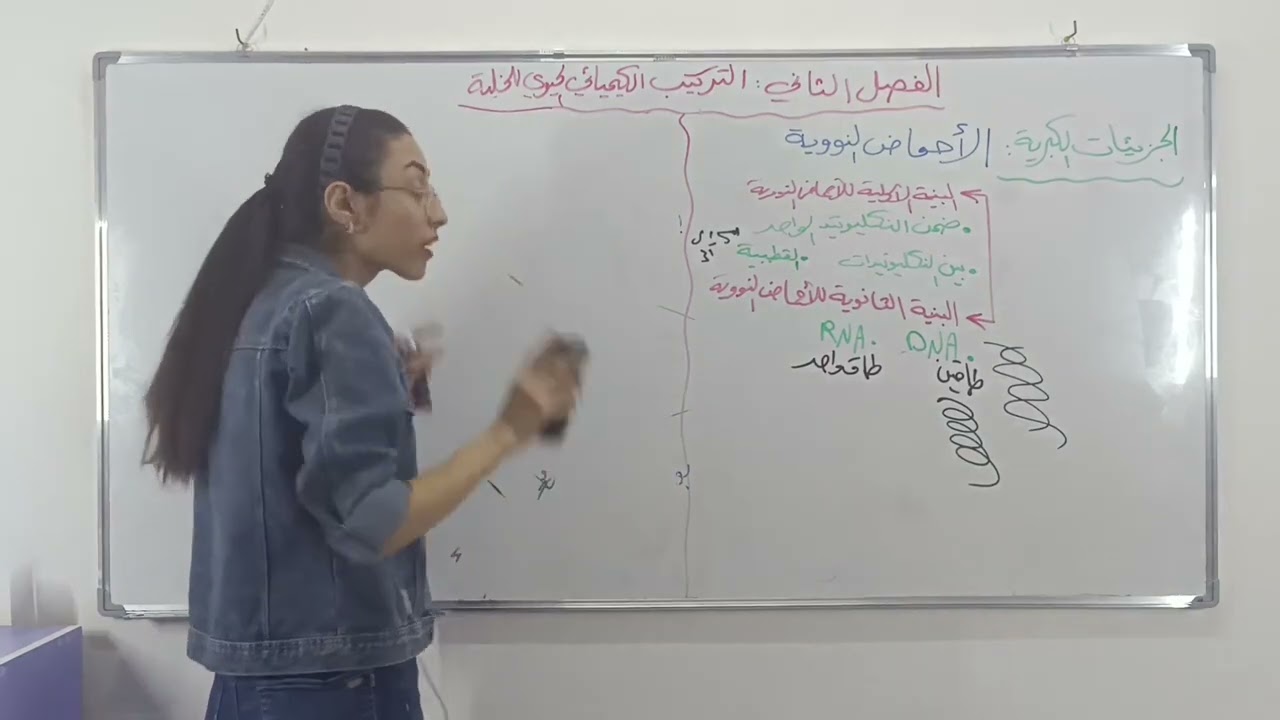 الفصل الثاني: التركيب الكيميائي الحيوي للخلية
الجزيئات الكبرية: الأحماض النووية
البنية الأولية للأحماض النووية
• ضمن النكليوتيد الواحد
• بين النكليوتيدات • القطبية
البنية الثانوية للأحماض النووية
• DNA • RNA
طاقين طاق واحد